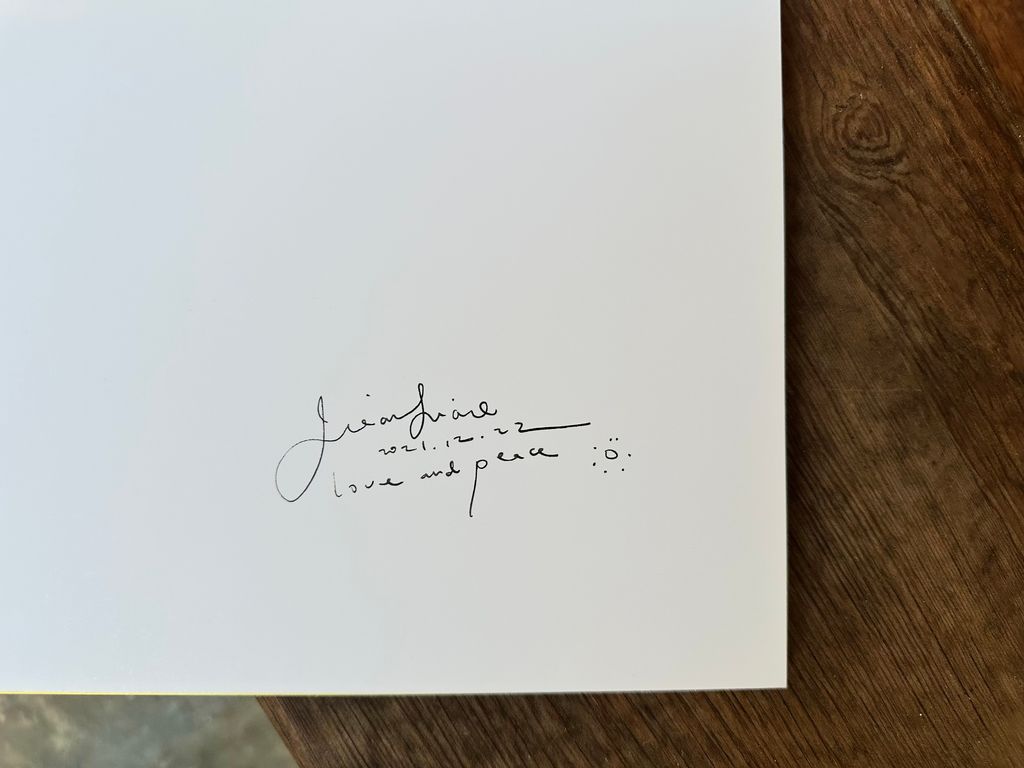 2021.12.22
love and peace